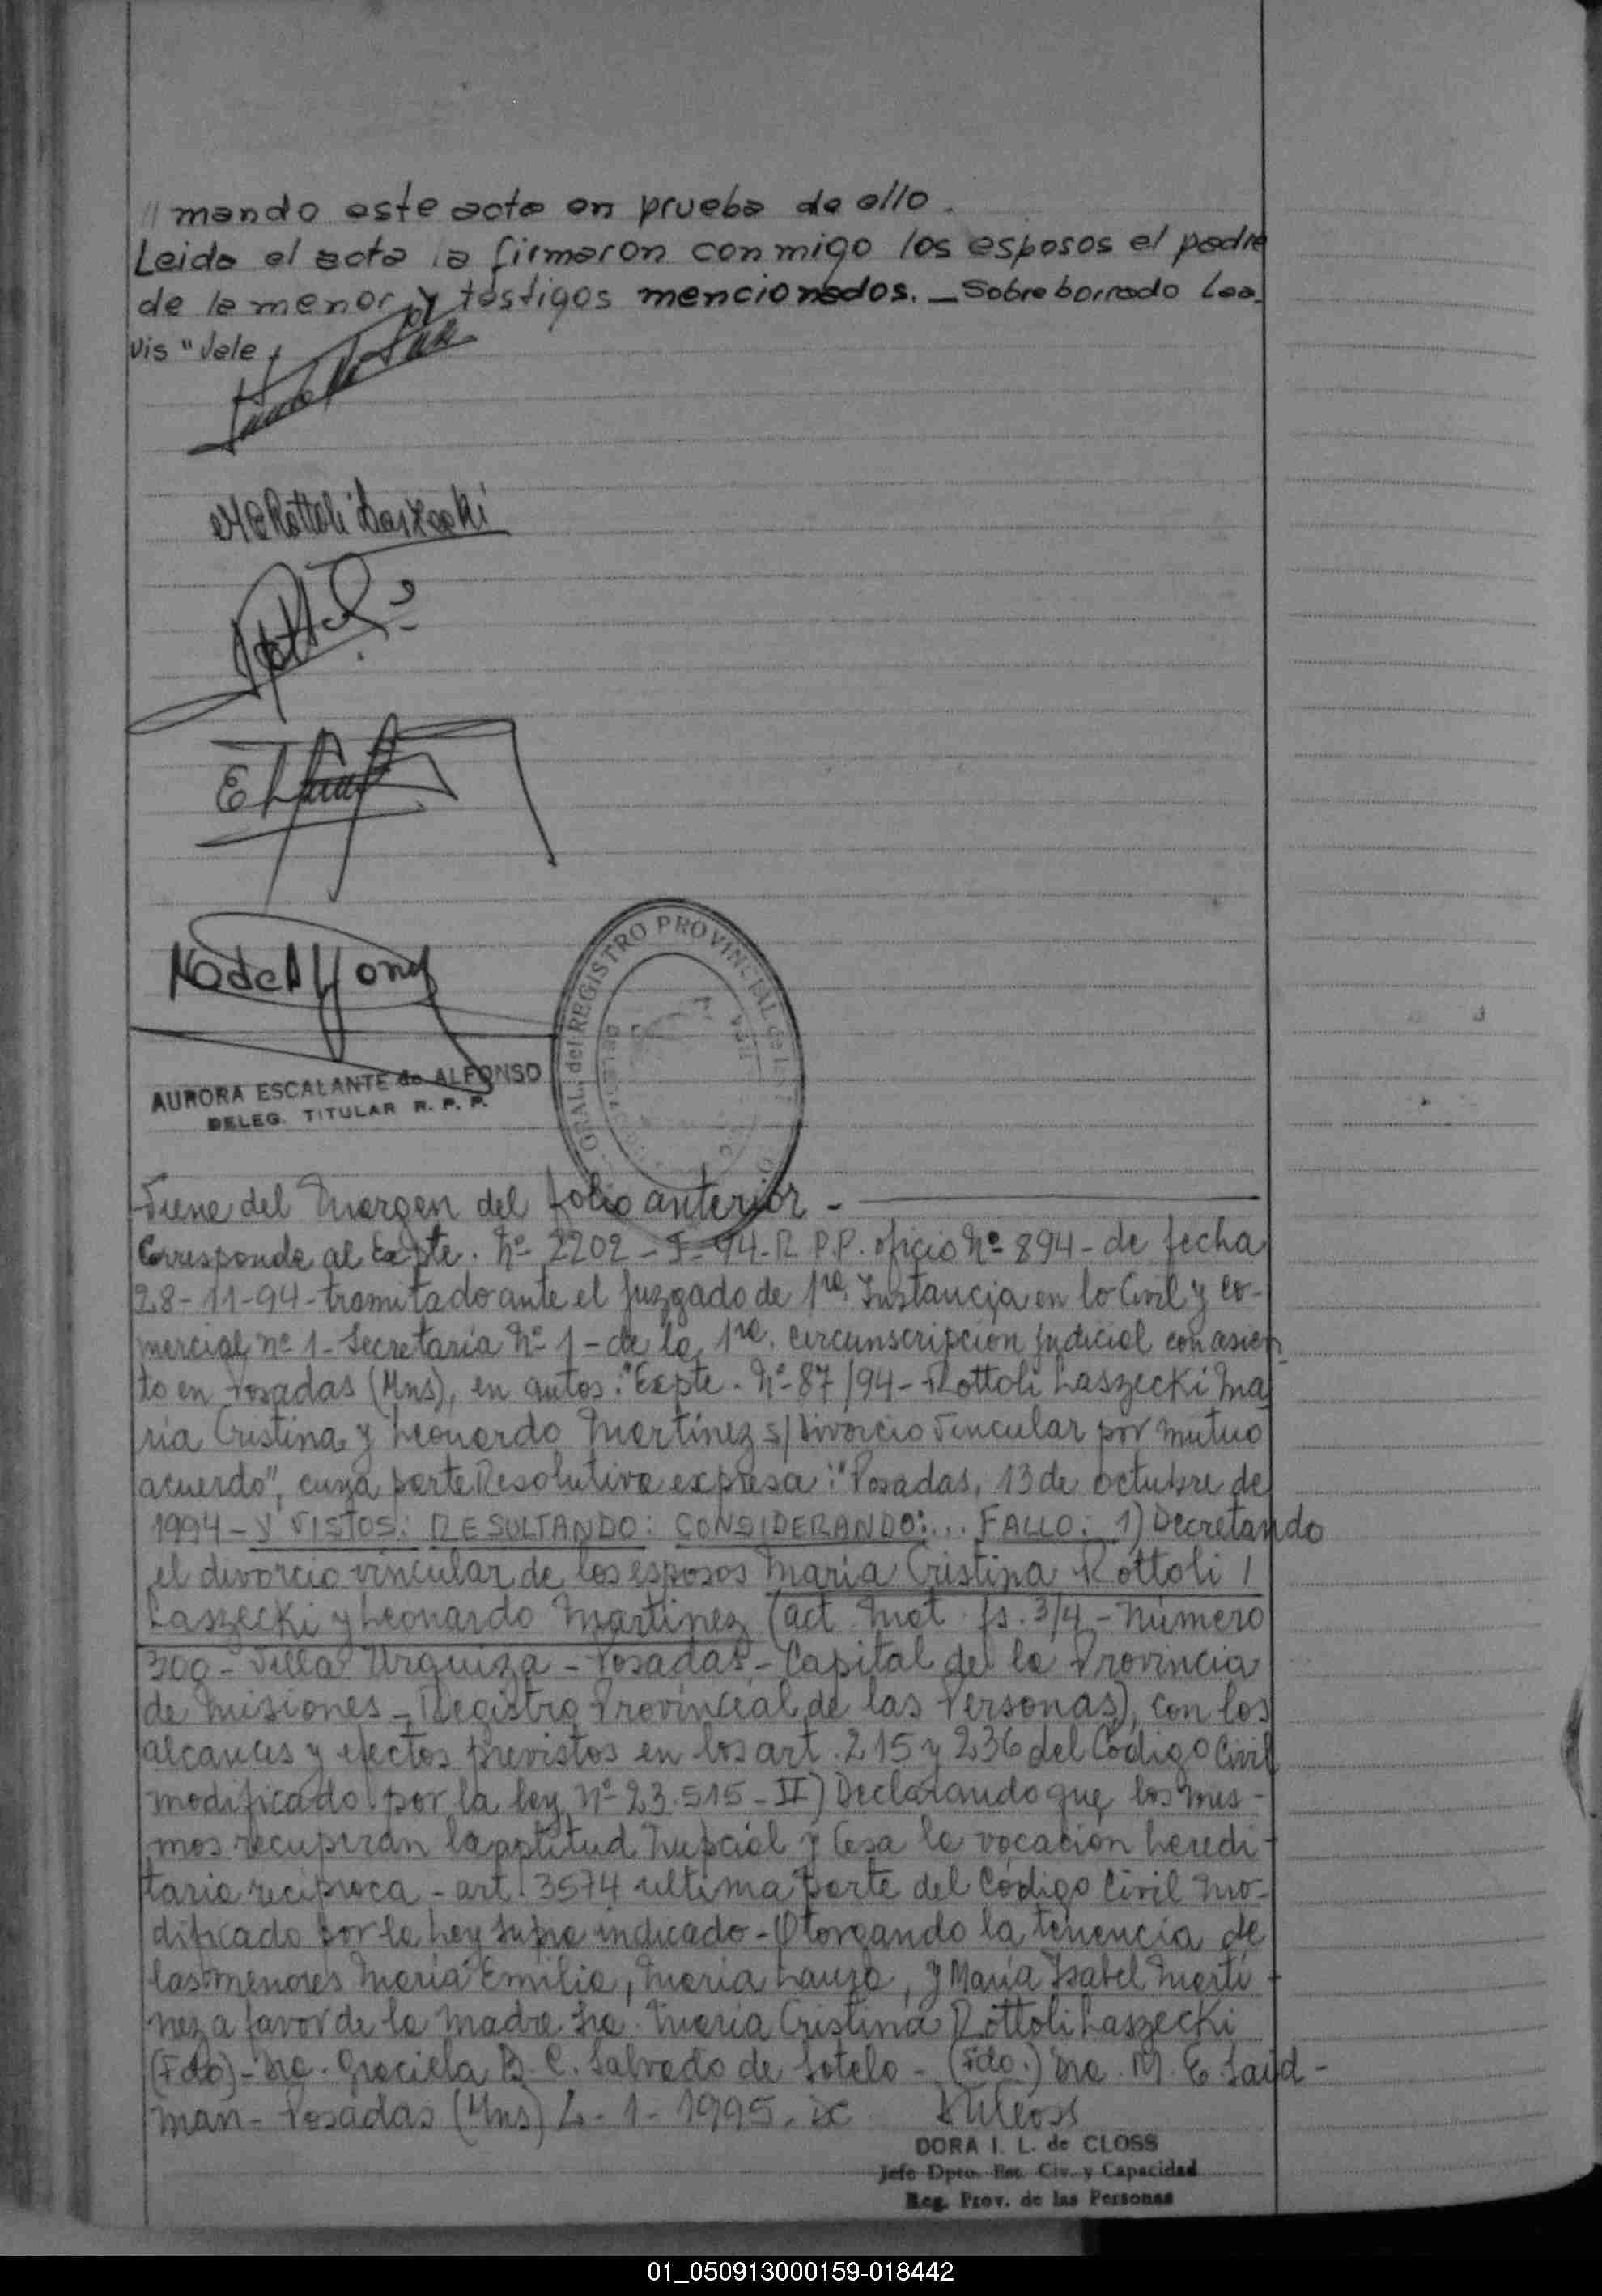 // mando este acta en prueba de ello.
Leida el acta la firmaron conmigo los esposos el padre
de la menor y testigos mencionados. _ Sobreborrado
Vale
MCRottoli Laszecki
ORAL. del REGISTRO PROVINCIAL de las
AURORA ESCALANTE de ALFONSO
DELEG. TITULAR R. P. P.
Viene del Margen del folio anterior -
Corresponde al Expte. Nº 2202 - 94 - R.P.P. oficio Nº 894 - de fecha
28-11-94 - tramitado ante el Juzgado de 1ra. Instancia en lo Civil y Co-
mercial nº 1 - Secretaría Nº 1 - de la 1ra. circunscripcion Judicial con asien-
to en Posadas (Mns), en autos: "Expte. Nº 87/94 - Rottoli Laszecki Ma
ría Cristina y Leonardo Martínez s/Divorcio Vincular por mutuo
acuerdo", cuya parte Resolutiva expresa: "Posadas, 13 de octubre de
1994 - Y VISTOS: RESULTANDO: CONSIDERANDO:... FALLO: 1) Decretando
el divorcio vincular de los esposos María Cristina Rottoli /
Laszecki y Leonardo Martínez (act. Mat. fs. 3/4 - Número
300 - Villa Urquiza - Posadas - Capital de la Provincia
de Misiones - Registro Provincial de las Personas), con los
alcances y efectos previstos en los art. 215 y 236 del Código Civil
modificado por la ley nº 23.515 - II) Declarando que los mis-
mos recuperan la aptitud Nupcial y Cesa la vocación heredi-
taria recíproca - art. 3574 ultima parte del Código Civil Mo-
dificado por la Ley supra indicado - Otorgando la tenencia de
las menores María Emilia, María Laura, y María Isabel Martí-
nez a favor de la madre Sra. María Cristina Rottoli Laszecki
(Fdo) - Dra. Graciela B. C. Salvado de Sotelo - (Fdo.) Dra. M. E. Said-
man - Posadas (Mns) 2 - 1 - 1995.
DORA I. L. de CLOSS
Jefe Dpto. Est. Civ. y Capacidad
Reg. Prov. de las Personas
01_050913000159-018442